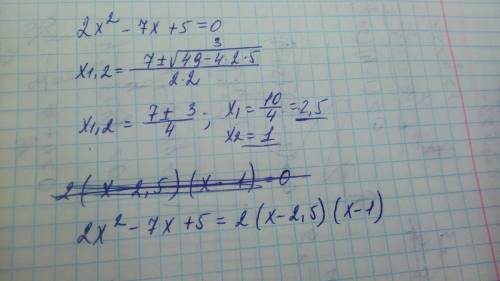 2x² - 7x + 5 = 0
x1,2 = (7 ± √(49 - 4·2·5)) / (2·2)
3
x1,2 = (7 ± 3) / 4 ; x₁ = 10/4 = 2,5
x2 = 1
2(x - 2,5)(x - 1) = 0
2x² - 7x + 5 = 2(x - 2,5)(x - 1)